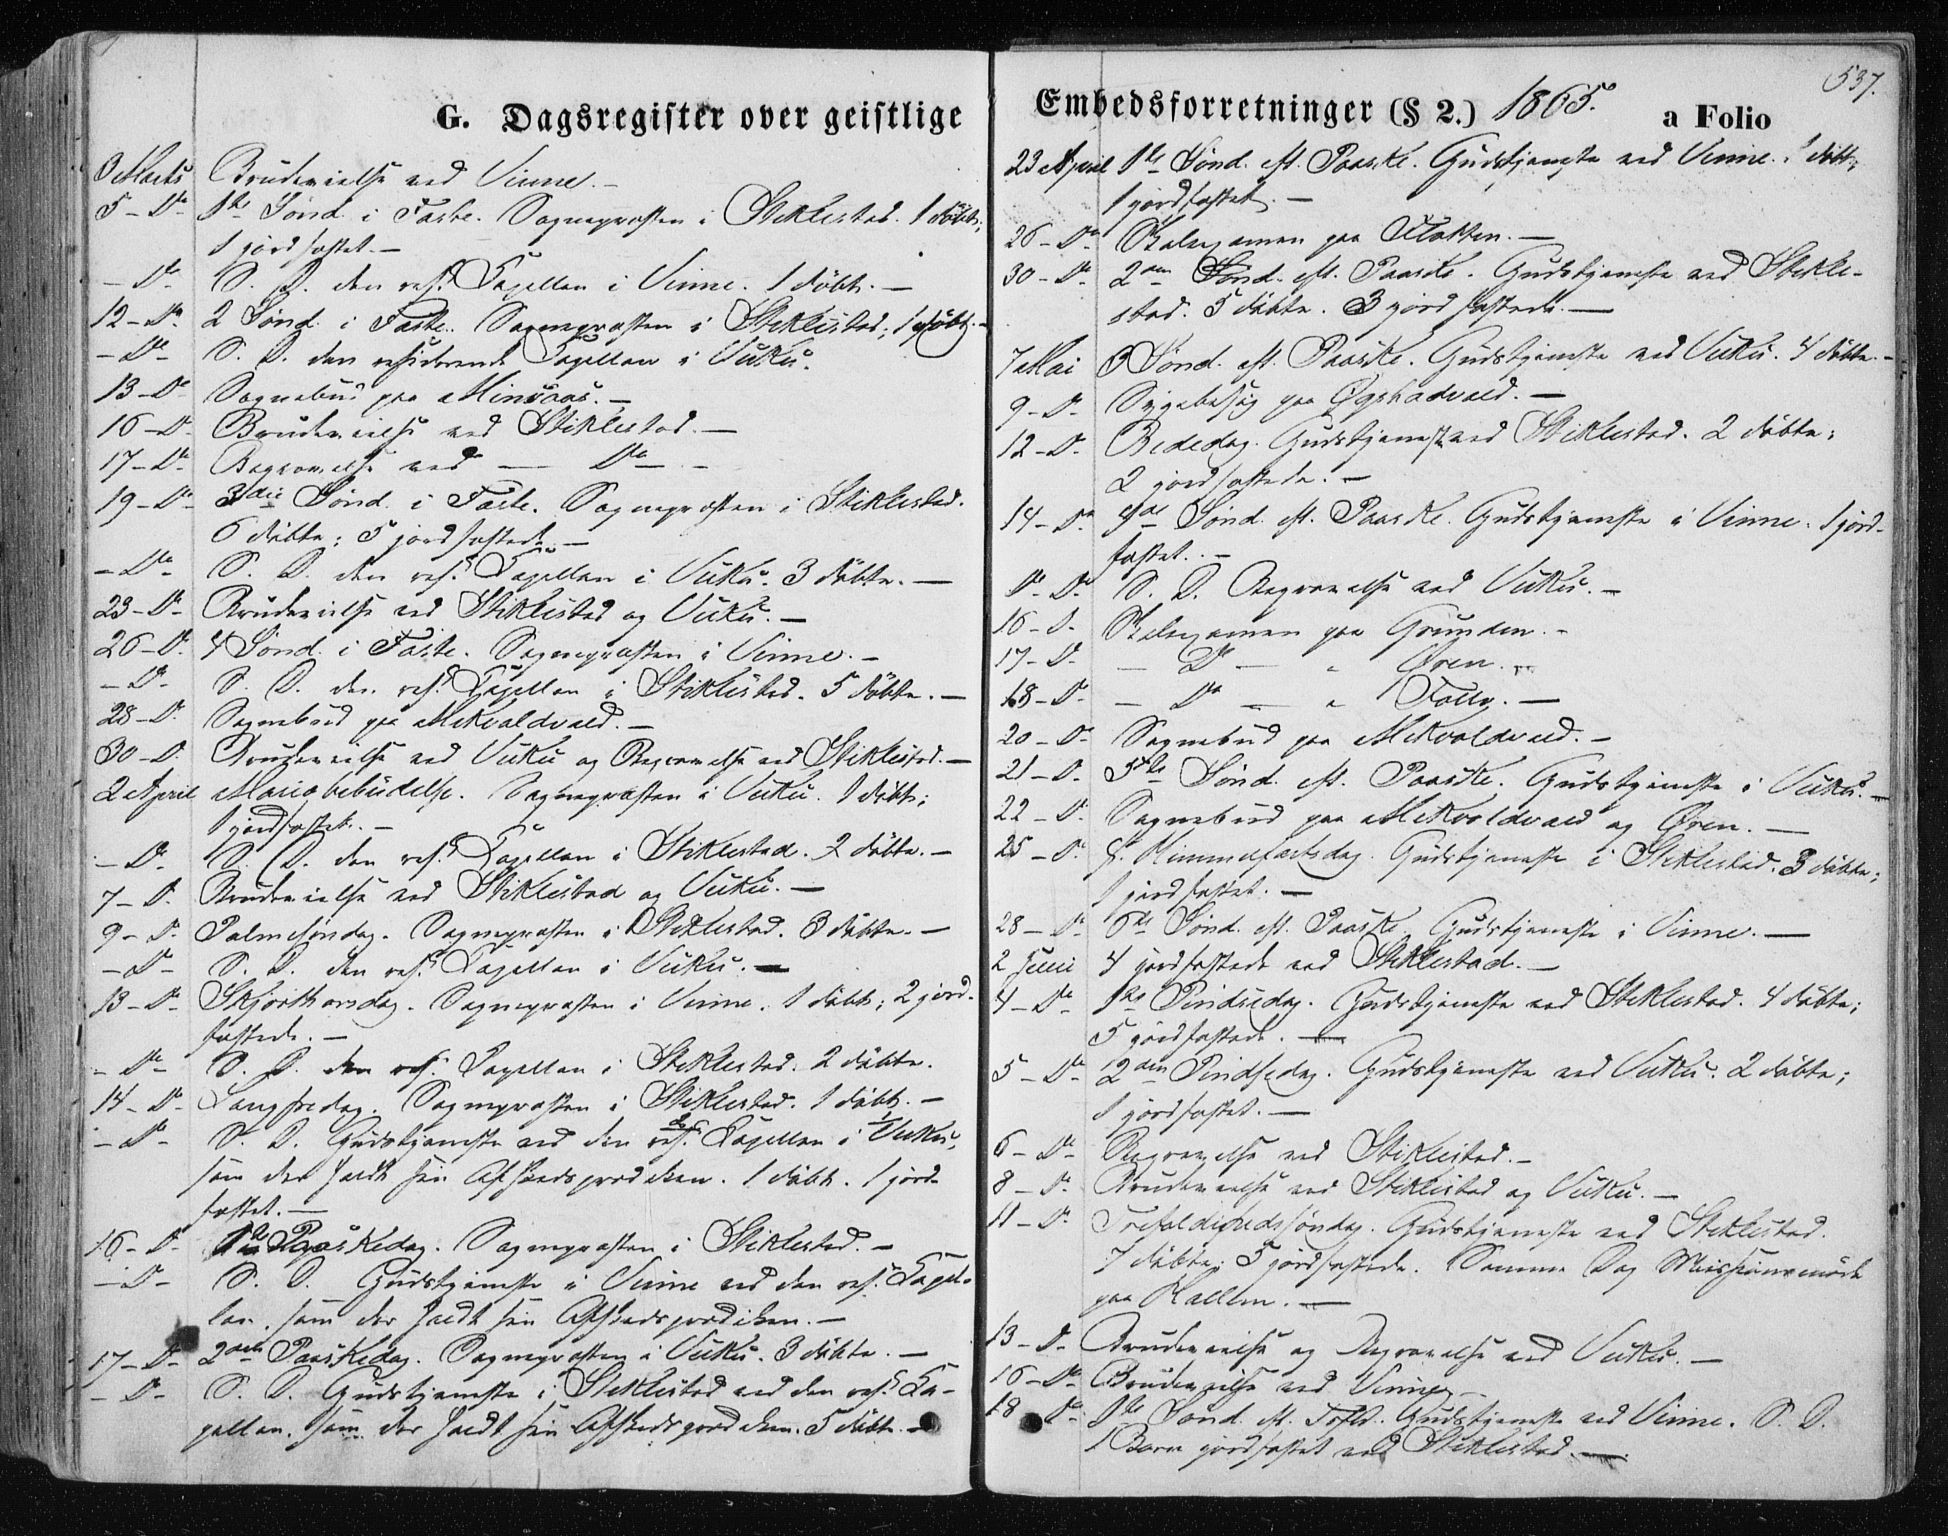 G. Dagsregister over geistlige
3 Marts Brudevielse ved Vinne. -
5 - Do 1ste Sönd. i Faste. Sognepræsten i Stiklestad. 1 döbt;
1 jordfæstet. -
- Do - S. D. den resd. Capellan i Vinne. 1 döbt. -
12 - Do 2 Sönd. i Faste. Sognepræsten i Stiklestad; 1 döbt. -
- Do - S. D. den residerende Capellan i Vuku.
13 - Do Sognebud paa Minsaas. -
16 - D. Brudevielse ved Stiklestad. -
17 - Do Begravelse ved — Do — -
19 - Do 3die Sönd. i Faste. Sognepræsten i Stiklestad.
6 döbte; 5 jordfæstede. -
- Do - S. D. den resd. Capellan i Vuku. 3 döbte. -
23 - Do Brudevielse ved Stiklestad og Vuku. -
26 - D. 4 Sönd. i Faste. Sognepræsten i Vinne. -
- Do S. D. den resd. Capellan i Stiklestad. 5 döbte. -
28 - D. Sognebud paa Mikvoldvald. -
30 - D. Brudevielse ved Vuku og Begravelse ved Stiklestad. -
2 April Mariæbebudelse. Sognepræsten i Vuku. 1 döbt;
1 jordfæstet. -
- D. S. D. den resd. Capellan i Stiklestad. 2 döbte. -
7 - D. Brudevielse ved Stiklestad og Vuku. -
9 - D. Palmesöndag. Sognepræsten i Stiklestad. 3 döbte. -
- D - S. D. den resd. Capellan i Vuku. -
13 - Do Skjærthorsdag. Sognepræsten i Vinne. 1 döbt; 2 jord-
fæstede. -
- Do S. D. den resd. Capellan i Stiklestad. 2 döbte.
14 - D - Langfredag. Sognepræsten i Stiklestad. 1 döbt. -
- Do - S. D. Gudstjeneste ved den resd. Capellan i Vuku,
som der holdt sin Afskedsprædiken. 1 döbt. 1 jord-
fæstet. -
16 - D - 1ste Paaskedag. Sognepræsten i Stiklestad. -
- D - S. D. Gudstjeneste i Vinne ved den resd. Capel-
lan, som der holdt sin Afskedsprædiken. -
17 - D - 2den Paaskedag. Sognepræsten i Vuku. 3 döbte. -
- D - S. D. Gudstjeneste i Stiklestad ved den resd. Ca-
pellan, som der holdt sin Afskedsprædiken. 5 döbte. -
537.
Embedsforretninger (§ 2.) 1865. a Folio
23 April 1ste Sönd. eft. Paaske. Gudstjeneste ved Vinne. 1 döbt;
1 jordfæstet. -
26 - Do paa Flotten. -
30 - Do 2den Sönd. eft. Paaske. Gudstjeneste ved Stikle-
stad. 5 döbte. 3 jordfæstede. -
7 Mai 3 Sönd. eft. Paaske. Gudstjeneste ved Vuku. 4 döbte. -
9 - D - Sygebesög paa Øgstadvald. -
12 - D. Bededag. Gudstjeneste ved Stiklestad. 2 döbte;
2 jordfæstede. -
14 - Do 4de Sönd. eft. Paaske. Gudstjeneste i Vinne. 1 jord-
fæstet. -
Do Do S. D. Begravelse ved Vuku. -
16 - D - paa Grunden. -
17 - D. — Do — " Øren. -
18 - Do — Do — " Follo. -
20 - Do Sognebud paa Mikvoldvald. -
21 - D. 5te Sönd. eft. Paaske. Gudstjeneste i Vuku. -
22 - D. Sognebud paa Mikvoldvald og Øren. -
25 - D. Himmelfartsdag. Gudstjeneste i Stiklestad. 3 döbte;
1 jordfæstet. -
28 - Do 6te Sönd. eft. Paaske. Gudstjeneste i Vinne. -
2 Juni 4 jordfæstede ved Stiklestad. -
4 - Do 1ste Pindsedag. Gudstjeneste ved Stiklestad. 4 döbte;
5 jordfæstede. -
5 - Do 2den Pindsedag. Gudstjeneste ved Vuku. 2 döbte;
1 jordfæstet. -
6 - Do Begravelse ved Stiklestad. -
8 - Do Brudevielse ved Stiklestad og Vuku. -
11 - D. Trefoldighedssöndag. Gudstjeneste ved Stiklestad.
7 döbte; 5 jordfæstede. Samme Dag Missionsmöde
paa Hallem. -
13 - Do Brudevielse og Begravelse ved Vuku. -
16 - Do Brudevielse ved Vinne. -
18 Do 1ste Sönd. eft. Trefld. Gudstjeneste ved Vinne. S. D.
1 Barn jordfæstet ved Stiklestad. -